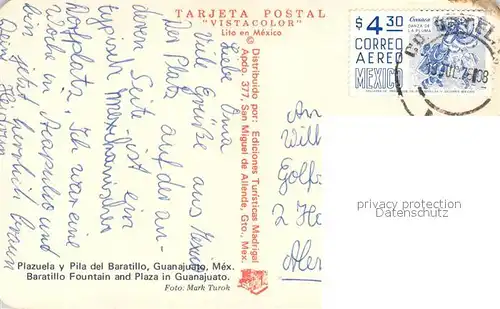 TARJETA POSTAL
"VISTACOLOR"
Lito en México
$4.30
Oaxaca
DANZA DE
LA PLUMA
CORREO
AEREO
MEXICO
Liebe Oma
Viele Grüße aus Mexico
Der Platz auf der an-
deren Seite ist ein
typisch mexikanischer
Dorfplatz. Ich war eine
Woche in Acapulco und
bin jetzt herrlich braun
Deine Heidrun
© Distribuido por: Ediciones Turísticas Madrigal
Apdo. 377, San Miguel de Allende, Gto., Mex.
An
Will
Golf
2 Ha
privacy protection
Datenschutz
Plazuela y Pila del Baratillo, Guanajuato, Méx.
Baratillo Fountain and Plaza in Guanajuato.
Foto: Mark Turok